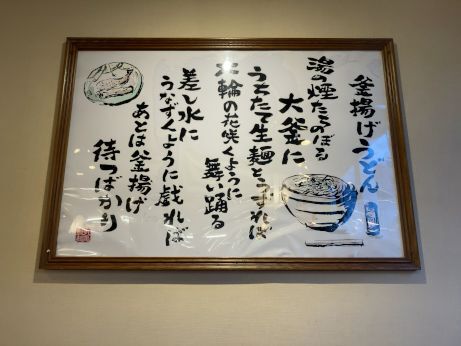 釜揚げうどん
湯の煙たちのぼる
大釜に
うちたて生麺とうずれば
大輪の花咲くように
舞い踊る
差し水に
うなずくように戯れば
あとは釜揚げ
待つばかり